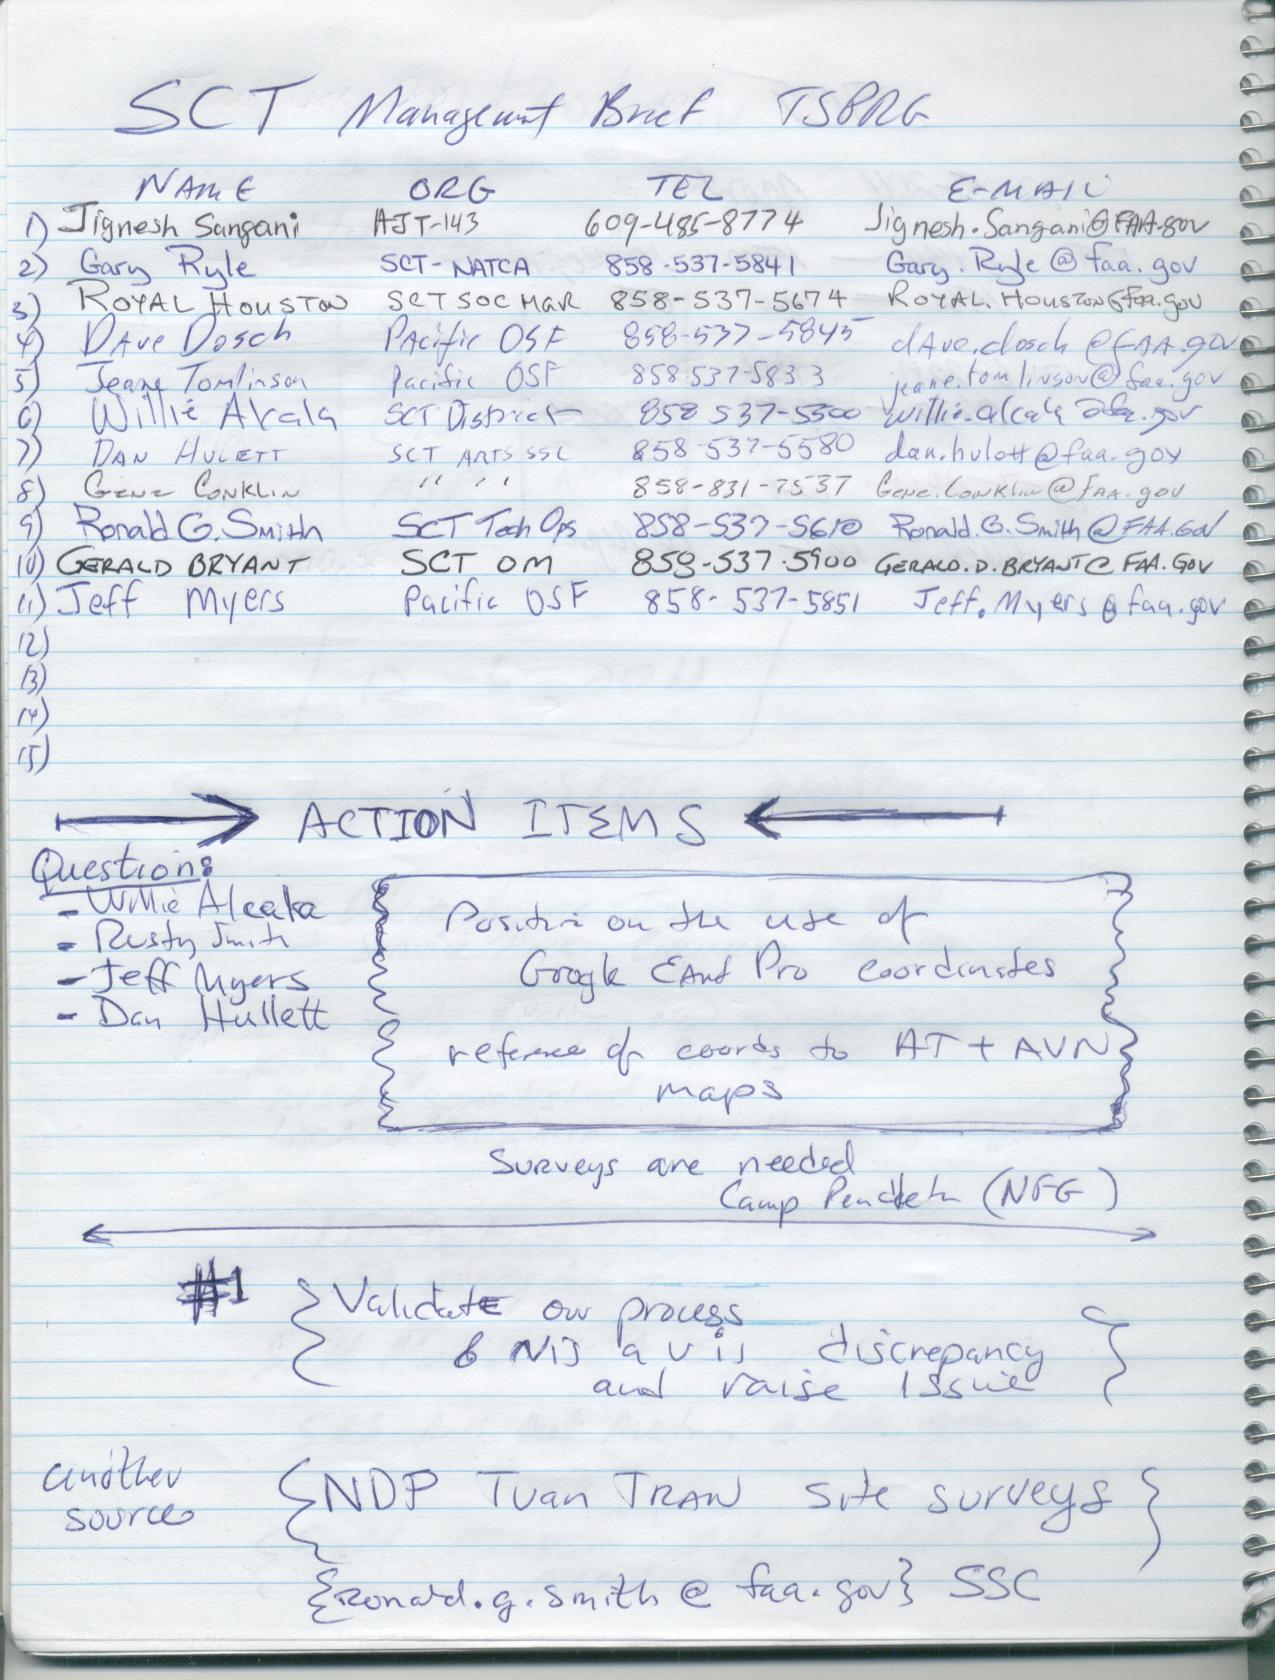 SCT Management Brief TSPRG
NAME ORG TEL E-MAIL
1) Jignesh Sangani AJT-143 609-485-8774 Jignesh.Sangani@FAA.gov
2) Gary Ryle SCT-NATCA 858-537-5841 Gary.Ryle@faa.gov
3) ROYAL HOUSTON SCT SOC MGR 858-537-5674 ROYAL.HOUSTON@faa.gov
4) DAve Dosch PAcific OSF 858-537-5845 dAve.dosch@FAA.gov
5) Jeane Tomlinson Pacific OSF 858-537-5833 jeane.tomlinson@faa.gov
6) Willie Alcala SCT District 858 537-5300 willie.alcala@faa.gov
7) DAN HULETT SCT ARTS SSC 858-537-5580 dan.hulett@faa.gov
8) GENE CONKLIN " " " 858-831-7537 GENE.CONKLIN@FAA.gov
9) Ronald G. Smith SCT Tech Ops 858-537-5610 Ronald.G.Smith@FAA.Gov
10) GERALD BRYANT SCT OM 858-537-5900 GERALD.D.BRYANT@FAA.GOV
11) Jeff Myers Pacific OSF 858-537-5851 Jeff.Myers@faa.gov
12)
13)
14)
15)
ACTION ITEMS
Question:
- Willie Alcala
- Rusty Smith
- Jeff Myers
- Dan Hullett
Position on the use of
Google EArth Pro coordinates
reference of coords to AT + AVN
maps
Surveys are needed
Camp Pendleton (NFG)
#1 { Validate our process }
discrepancy
and raise issue
another
source
{NDP Tuan TRAN site surveys}
{Ronald.g.smith@faa.gov} SSC